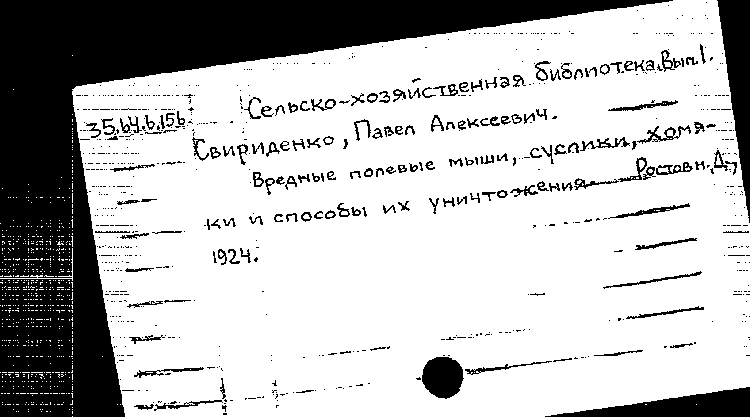 Сельско-хозяйственная библиотека. Вып. 1.
35.64.6.156
Свириденко, Павел Алексеевич.
Вредные полевые мыши, суслики, хомя-
ки и способы их уничтожения. Ростов н. Д.,
1924.